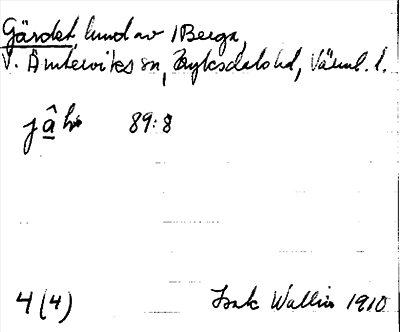 Gärdet, lund av 1 Berga,
V. Ämterviks sn, Fryksdals hd, Värml. l.
89:8
4 (4) Isak Wallin 1910